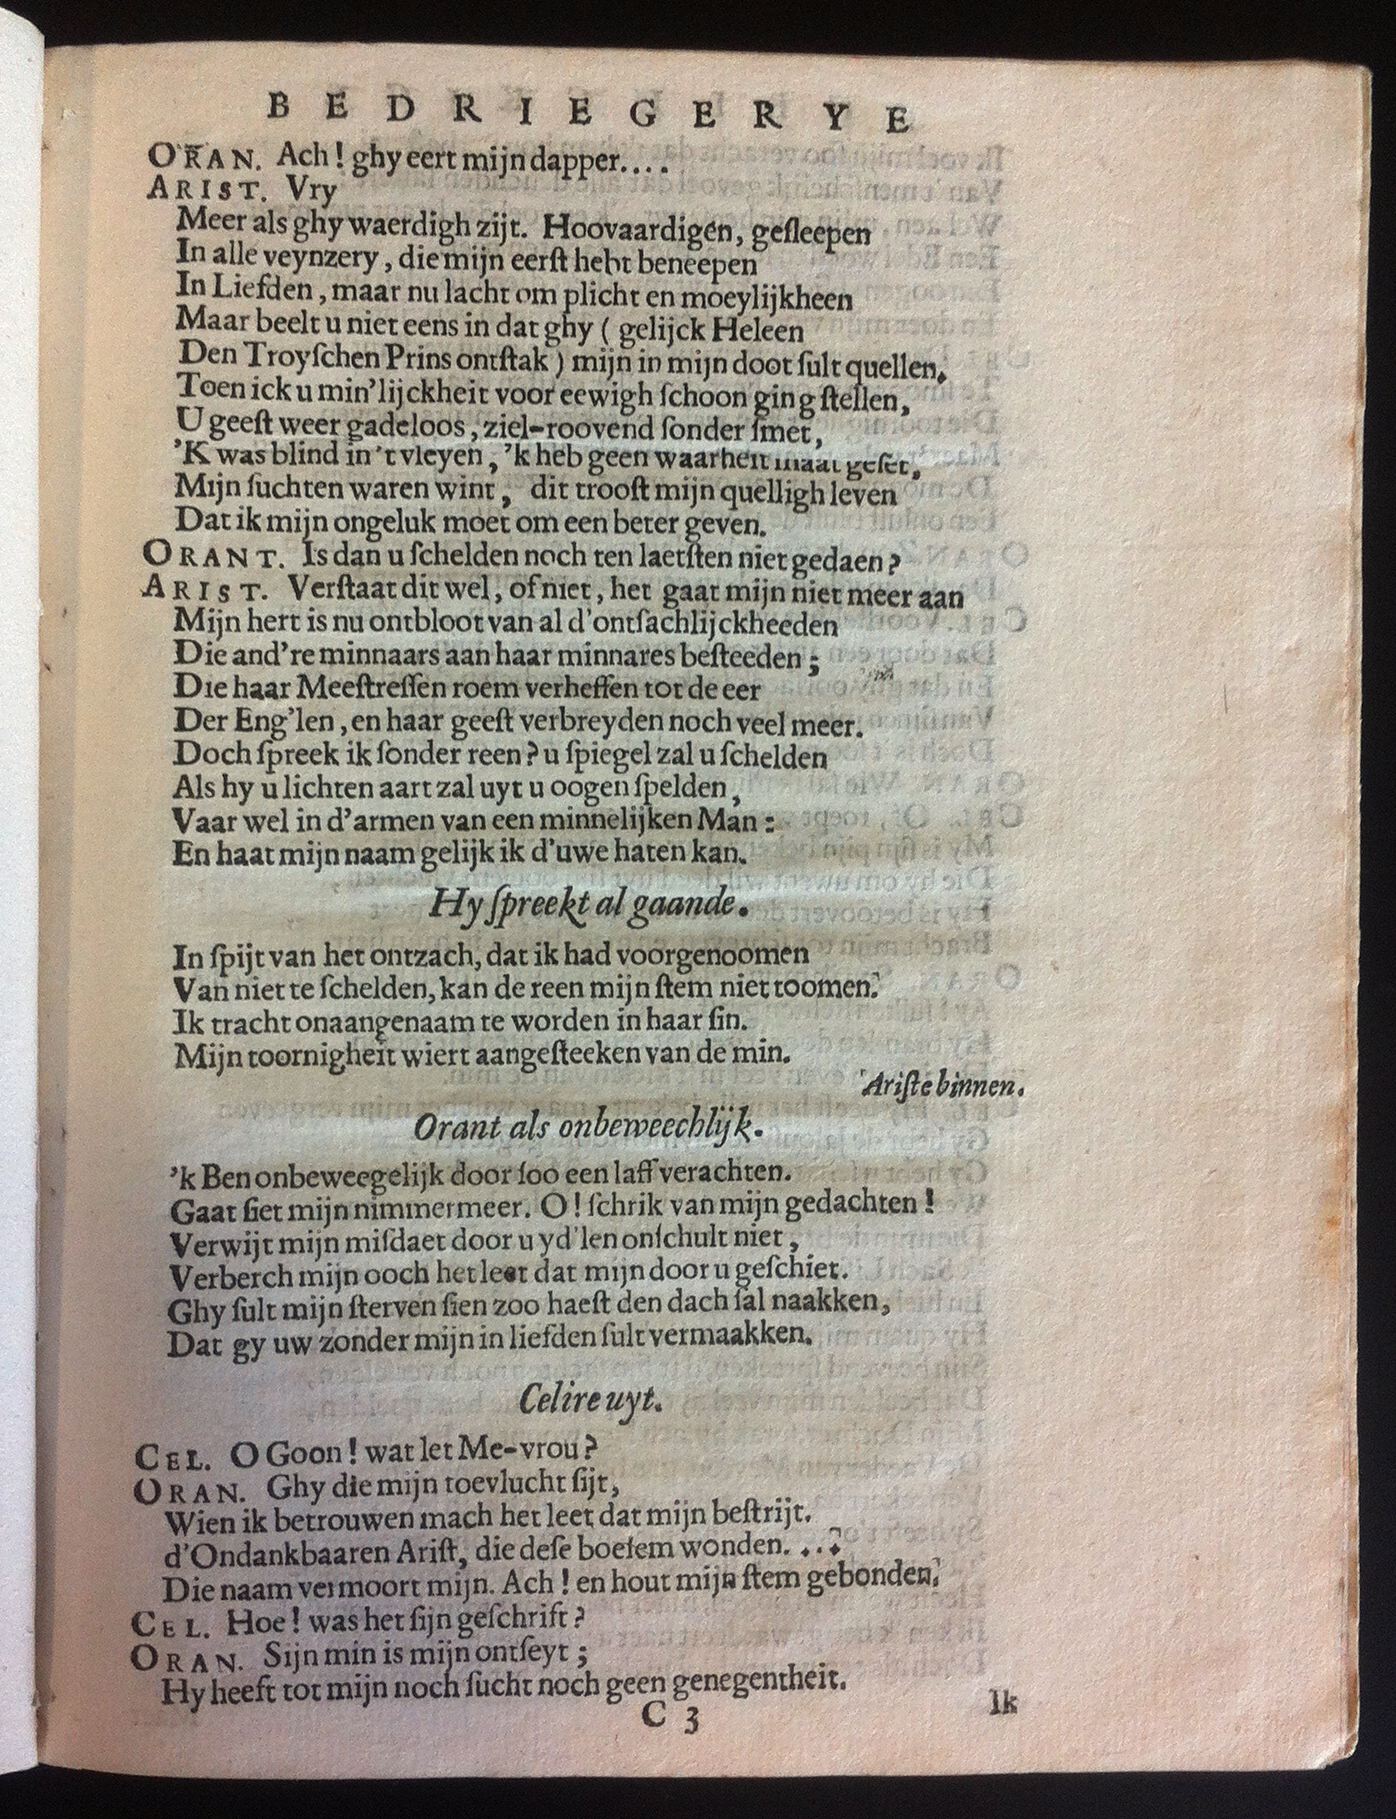 BEDRIEGERYE
ORAN. Ach! ghy eert mijn dapper....
ARIST. Vry
Meer als ghy waerdigh zijt. Hoovaardigen, geſleepen
In alle veynzery, die mijn eerſt hebt beneepen
In Liefden, maar nu lacht om plicht en moeylijkheen
Maar beelt u niet eens in dat ghy ( gelijck Heleen
Den Troyſchen Prins ontſtak ) mijn in mijn doot ſult quellen,
Toen ick u min'lijckheit voor eewigh ſchoon ging ſtellen,
U geeſt weer gadeloos, ziel-roovend ſonder ſmet,
'K was blind in 't vleyen, 'k heb geen waarheit maat geſet,
Mijn ſuchten waren wint, dit trooſt mijn quelligh leven
Dat ik mijn ongeluk moet om een beter geven.
ORANT. Is dan u ſchelden noch ten laetſten niet gedaen?
ARIST. Verſtaat dit wel, of niet, het gaat mijn niet meer aan
Mijn hert is nu ontbloot van al d'ontſachlijckheeden
Die and're minnaars aan haar minnares beſteeden;
Die haar Meeſtreſſen roem verheffen tot de eer
Der Eng'len, en haar geeſt verbreyden noch veel meer.
Doch ſpreek ik ſonder reen? u ſpiegel zal u ſchelden
Als hy u lichten aart zal uyt u oogen ſpelden,
Vaar wel in d'armen van een minnelijken Man:
En haat mijn naam gelijk ik d'uwe haten kan.
Hy ſpreekt al gaande.
In ſpijt van het ontzach, dat ik had voorgenoomen
Van niet te ſchelden, kan de reen mijn ſtem niet toomen.
Ik tracht onaangenaam te worden in haar ſin.
Mijn toornigheit wiert aangeſteeken van de min.
Ariſte binnen.
Orant als onbeweechlijk.
'k Ben onbeweegelijk door ſoo een laff verachten.
Gaat ſiet mijn nimmermeer. O! ſchrik van mijn gedachten!
Verwijt mijn miſdaet door u yd'len onſchult niet,
Verberch mijn ooch het leet dat mijn door u geſchiet.
Ghy ſult mijn ſterven ſien zoo haeſt den dach ſal naakken,
Dat gy uw zonder mijn in liefden ſult vermaakken.
Celire uyt.
CEL. O Goon! wat let Me-vrou?
ORAN. Ghy die mijn toevlucht ſijt,
Wien ik betrouwen mach het leet dat mijn beſtrijt.
d'Ondankbaaren Ariſt, die deſe boeſem wonden. ...
Die naam vermoort mijn. Ach! en hout mijn ſtem gebonden.
CEL. Hoe! was het ſijn geſchrift?
ORAN. Sijn min is mijn ontſeyt;
Hy heeft tot mijn noch ſucht noch geen genegentheit.
C 3 Ik